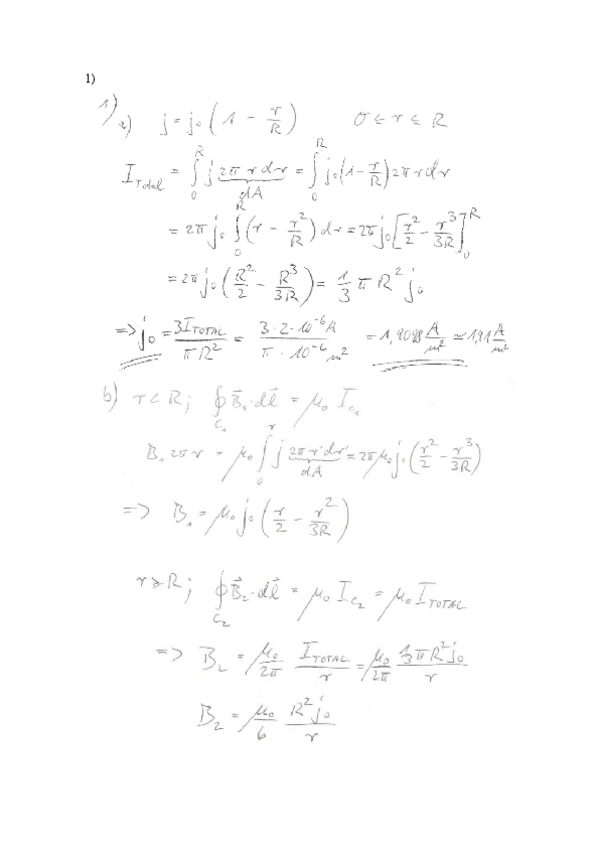 1)
1) a) j = j₀(1 - r/R) 0 ≤ r ≤ R
I_Total = ∫₀ᴿ j 2π r dr (dA) = ∫₀ᴿ j₀(1 - r/R) 2π r dr
= 2π j₀ ∫₀ᴿ (r - r²/R) dr = 2π j₀ [r²/2 - r³/3R]₀ᴿ
= 2π j₀ (R²/2 - R³/3R) = 1/3 π R² j₀
=> j₀ = 3 I_TOTAL / π R² = 3·2·10⁻⁶ A / π·10⁻⁶ m² = 1,9098 A/m² ≃ 1,91 A/m²
b) r < R ; ∮_C₁ B⃗₁·dl⃗ = μ₀ I_C₁
B₁ 2π r = μ₀ ∫₀ʳ j 2π r' dr' (dA) = 2π μ₀ j₀ (r²/2 - r³/3R)
=> B₁ = μ₀ j₀ (r/2 - r²/3R)
r ≥ R ; ∮_C₂ B⃗₂·dl⃗ = μ₀ I_C₂ = μ₀ I_TOTAL
=> B₂ = μ₀/2π I_TOTAL/r = μ₀/2π (1/3 π R² j₀)/r
B₂ = μ₀/6 R² j₀/r